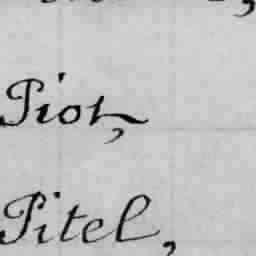 Piot,
Pitel,